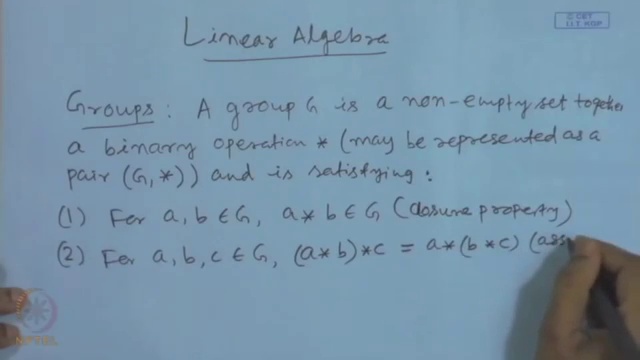 © CET
I.I.T. KGP
Linear Algebra
Groups: A group G is a non-empty set together
a binary operation * (may be represented as a
pair (G, *)) and is satisfying:
(1) For a, b ∈ G, a * b ∈ G (closure property)
(2) For a, b, c ∈ G, (a * b) * c = a * (b * c) (ass
NPTEL